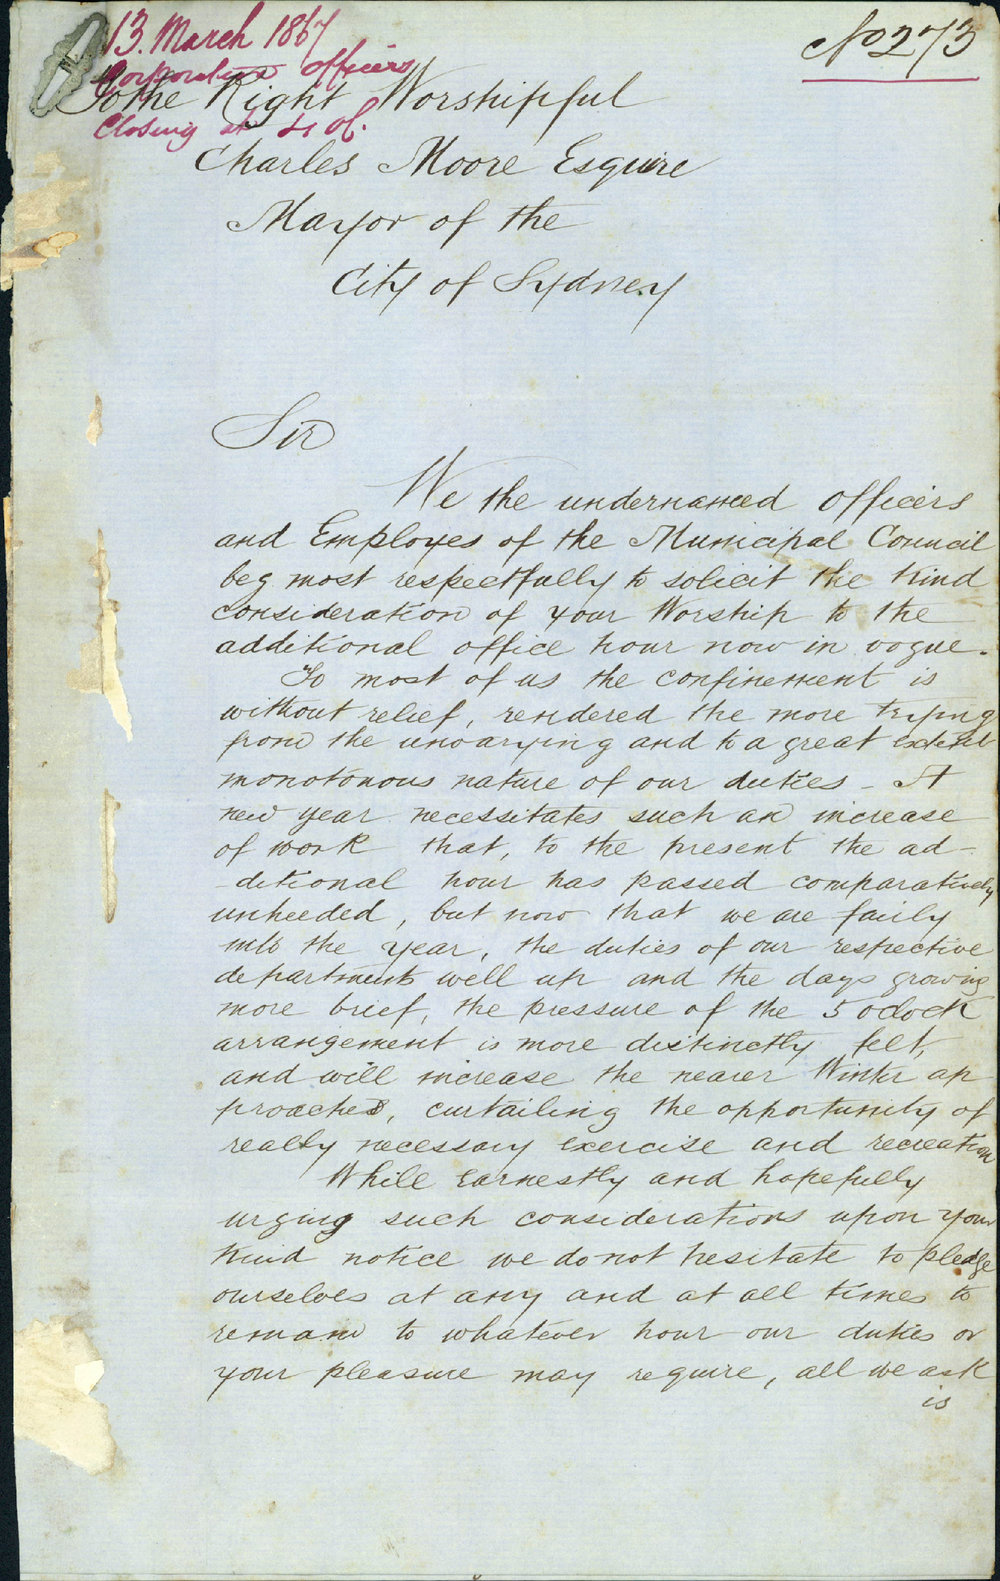 13. March 1867
No 273
Corporation officers
To the Right Worshipful
Closing at 4 oC.
Charles Moore Esquire
Mayor of the
City of Sydney
Sir
We the undernamed officers
and Employes of the Municipal Council
beg most respectfully to solicit the kind
consideration of your Worship to the
additional office hour now in vogue.
To most of us the confinement is
without relief, rendered the more trying
from the unvarying and to a great extent
monotonous nature of our duties - A
new year necessitates such an increase
of work that, to the present the ad-
-ditional hour has passed comparatively
unheeded, but now that we are fairly
into the year, the duties of our respective
departments well up and the days growing
more brief, the pressure of the 5 oclock
arrangement is more distinctly felt,
and will increase the nearer Winter ap
proaches, curtailing the opportunity of
really necessary exercise and recreation
While earnestly and hopefully
urging such considerations upon your
kind notice we do not hesitate to pledge
ourselves at any and at all times to
remain to whatever hour our duties or
your pleasure may require, all we ask
is